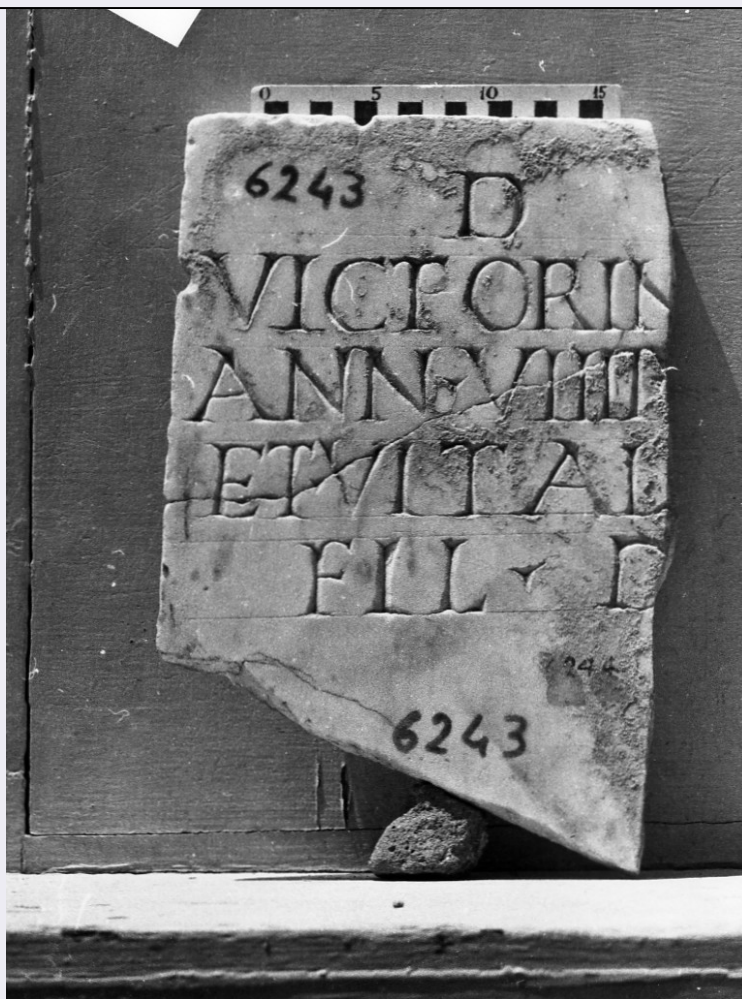 0 5 10 15
6243
D
VICTORIN
ANN·VIIII
ET VITAL
FIL · D
6243